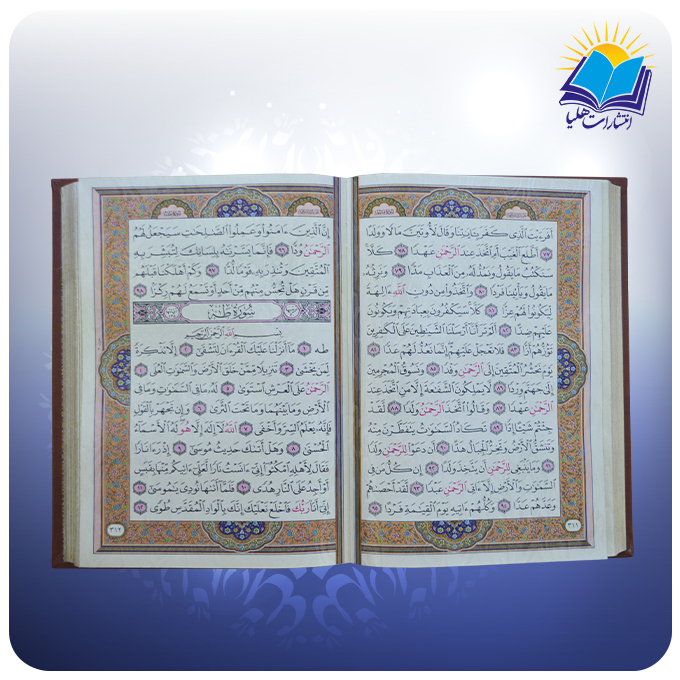 انتشارات هلیا
أَفَرَءَيْتَ ٱلَّذِى كَفَرَ بِـَٔايَٰتِنَا وَقَالَ لَأُوتَيَنَّ مَالًا وَوَلَدًا
٧٧ أَطَّلَعَ ٱلْغَيْبَ أَمِ ٱتَّخَذَ عِندَ ٱلرَّحْمَٰنِ عَهْدًا ٧٨ كَلَّا
سَنَكْتُبُ مَا يَقُولُ وَنَمُدُّ لَهُۥ مِنَ ٱلْعَذَابِ مَدًّا ٧٩ وَنَرِثُهُۥ
مَا يَقُولُ وَيَأْتِينَا فَرْدًا ٨٠ وَٱتَّخَذُوا۟ مِن دُونِ ٱللَّهِ ءَالِهَةً
لِّيَكُونُوا۟ لَهُمْ عِزًّا ٨١ كَلَّا سَيَكْفُرُونَ بِعِبَادَتِهِمْ وَيَكُونُونَ
عَلَيْهِمْ ضِدًّا ٨٢ أَلَمْ تَرَ أَنَّآ أَرْسَلْنَا ٱلشَّيَٰطِينَ عَلَى ٱلْكَٰفِرِينَ
تَؤُزُّهُمْ أَزًّا ٨٣ فَلَا تَعْجَلْ عَلَيْهِمْ إِنَّمَا نَعُدُّ لَهُمْ عَدًّا ٨٤
يَوْمَ نَحْشُرُ ٱلْمُتَّقِينَ إِلَى ٱلرَّحْمَٰنِ وَفْدًا ٨٥ وَنَسُوقُ ٱلْمُجْرِمِينَ
إِلَىٰ جَهَنَّمَ وِرْدًا ٨٦ لَّا يَمْلِكُونَ ٱلشَّفَٰعَةَ إِلَّا مَنِ ٱتَّخَذَ عِندَ
ٱلرَّحْمَٰنِ عَهْدًا ٨٧ وَقَالُوا۟ ٱتَّخَذَ ٱلرَّحْمَٰنُ وَلَدًا ٨٨ لَّقَدْ
جِئْتُمْ شَيْـًٔا إِدًّا ٨٩ تَكَادُ ٱلسَّمَٰوَٰتُ يَتَفَطَّرْنَ مِنْهُ
وَتَنشَقُّ ٱلْأَرْضُ وَتَخِرُّ ٱلْجِبَالُ هَدًّا ٩٠ أَن دَعَوْا۟ لِلرَّحْمَٰنِ وَلَدًا
٩١ وَمَا يَنۢبَغِى لِلرَّحْمَٰنِ أَن يَتَّخِذَ وَلَدًا ٩٢ إِن كُلُّ مَن فِى
ٱلسَّمَٰوَٰتِ وَٱلْأَرْضِ إِلَّآ ءَاتِى ٱلرَّحْمَٰنِ عَبْدًا ٩٣ لَّقَدْ أَحْصَىٰهُمْ
وَعَدَّهُمْ عَدًّا ٩٤ وَكُلُّهُمْ ءَاتِيهِ يَوْمَ ٱلْقِيَٰمَةِ فَرْدًا ٩٥
٣١١
إِنَّ ٱلَّذِينَ ءَامَنُوا۟ وَعَمِلُوا۟ ٱلصَّٰلِحَٰتِ سَيَجْعَلُ لَهُمُ
ٱلرَّحْمَٰنُ وُدًّا ٩٦ فَإِنَّمَا يَسَّرْنَٰهُ بِلِسَانِكَ لِتُبَشِّرَ بِهِ
ٱلْمُتَّقِينَ وَتُنذِرَ بِهِۦ قَوْمًا لُّدًّا ٩٧ وَكَمْ أَهْلَكْنَا قَبْلَهُم
مِّن قَرْنٍ هَلْ تُحِسُّ مِنْهُم مِّنْ أَحَدٍ أَوْ تَسْمَعُ لَهُمْ رِكْزًۢا ٩٨
سُورَةُ طه
بِسْمِ ٱللَّهِ ٱلرَّحْمَٰنِ ٱلرَّحِيمِ
طه ١ مَآ أَنزَلْنَا عَلَيْكَ ٱلْقُرْءَانَ لِتَشْقَىٰٓ ٢ إِلَّا تَذْكِرَةً
لِّمَن يَخْشَىٰ ٣ تَنزِيلًا مِّمَّنْ خَلَقَ ٱلْأَرْضَ وَٱلسَّمَٰوَٰتِ ٱلْعُلَى ٤
ٱلرَّحْمَٰنُ عَلَى ٱلْعَرْشِ ٱسْتَوَىٰ ٥ لَهُۥ مَا فِى ٱلسَّمَٰوَٰتِ وَمَا فِى
ٱلْأَرْضِ وَمَا بَيْنَهُمَا وَمَا تَحْتَ ٱلثَّرَىٰ ٦ وَإِن تَجْهَرْ بِٱلْقَوْلِ
فَإِنَّهُۥ يَعْلَمُ ٱلسِّرَّ وَأَخْفَى ٧ ٱللَّهُ لَآ إِلَٰهَ إِلَّا هُوَ لَهُ ٱلْأَسْمَآءُ
ٱلْحُسْنَىٰ ٨ وَهَلْ أَتَىٰكَ حَدِيثُ مُوسَىٰٓ ٩ إِذْ رَءَا نَارًا
فَقَالَ لِأَهْلِهِ ٱمْكُثُوٓا۟ إِنِّىٓ ءَانَسْتُ نَارًا لَّعَلِّىٓ ءَاتِيكُم مِّنْهَا بِقَبَسٍ
أَوْ أَجِدُ عَلَى ٱلنَّارِ هُدًى ١٠ فَلَمَّآ أَتَىٰهَا نُودِىَ يَٰمُوسَىٰٓ ١١
إِنِّىٓ أَنَا۠ رَبُّكَ فَٱخْلَعْ نَعْلَيْكَ إِنَّكَ بِٱلْوَادِ ٱلْمُقَدَّسِ طُوًى ١٢
٣١٢